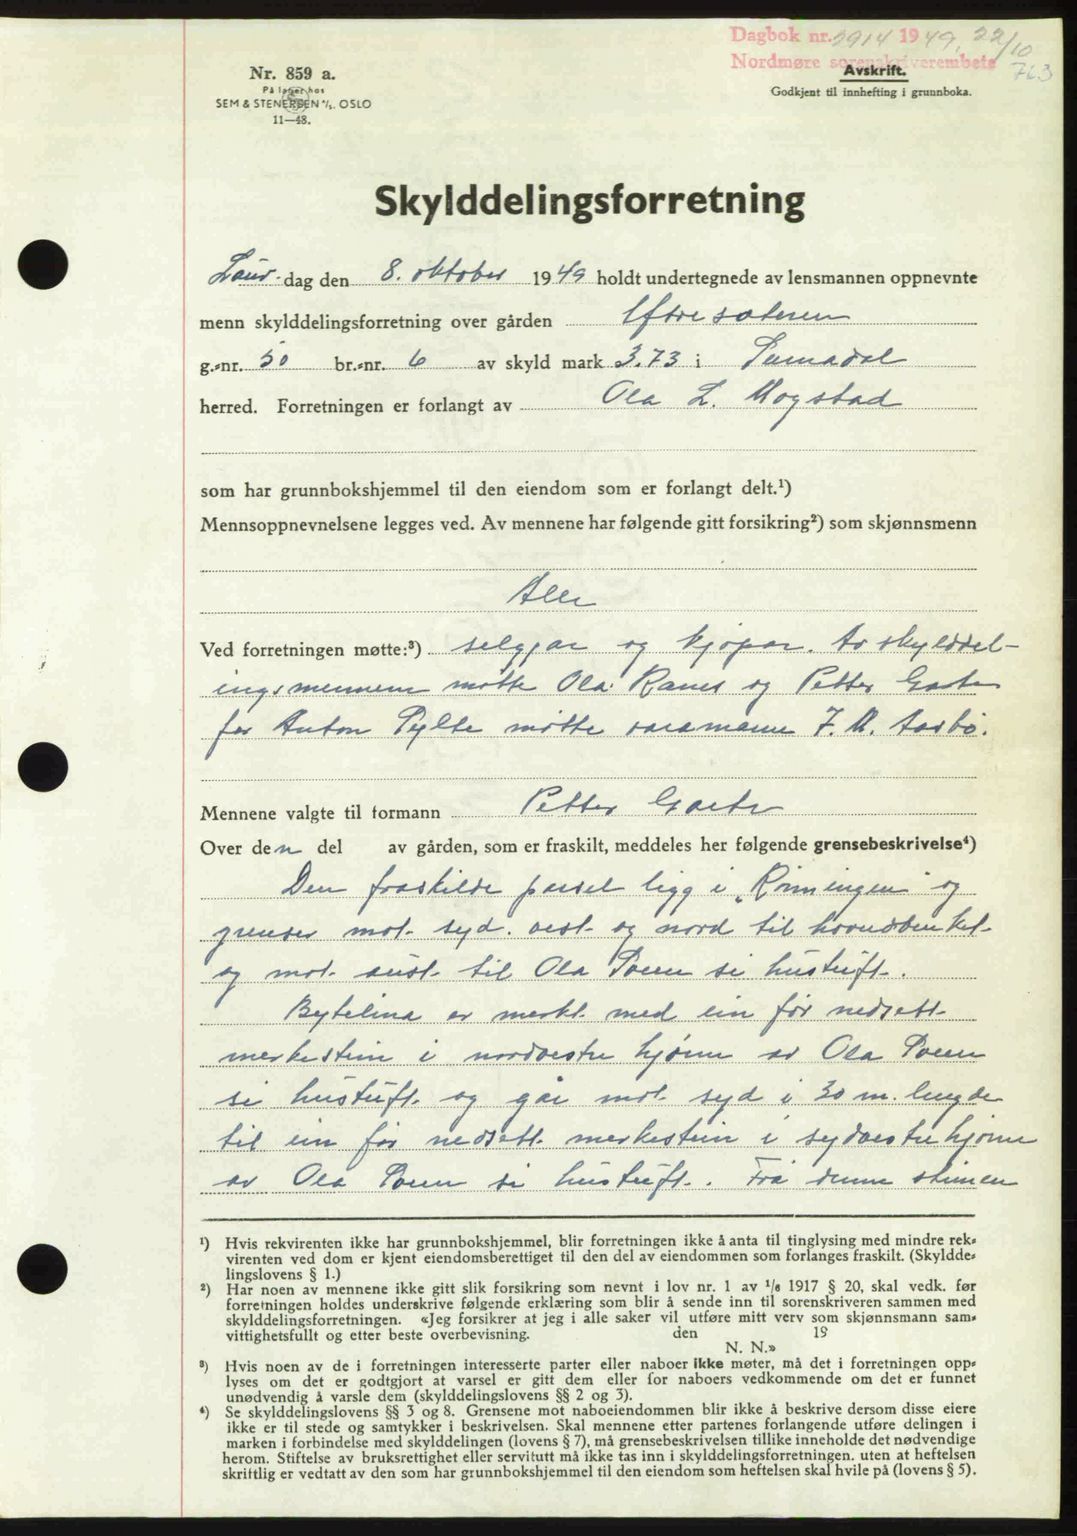 Dagbok nr. 2914 1949, 22/10
Nordmøre sorenskriverembete 763
Avskrift.
Godkjent til innhefting i grunnboka.
Nr. 859 a.
På lager hos
SEM & STENERSEN A/S. OSLO
11—48.
Skylddelingsforretning
Laur-dag den 8. oktober 1949 holdt undertegnede av lensmannen oppnevnte
menn skylddelingsforretning over gården Øfstesæteren
g.-nr. 50 br.-nr. 6 av skyld mark 3.73 i Surnadal
herred. Forretningen er forlangt av Ola L. Mogstad
som har grunnbokshjemmel til den eiendom som er forlangt delt.¹)
Mennsoppnevnelsene legges ved. Av mennene har følgende gitt forsikring²) som skjønnsmenn
Alle
Ved forretningen møtte:³) seljar og kjøpar. Av skylddel-
ingsmennene møtte Ola Ranes og Petter
for Anton Sylte møtte varamann F. M. Aasbø.
Mennene valgte til formann Petter
Over den del av gården, som er fraskilt, meddeles her følgende grensebeskrivelse⁴)
Den fraskilde parsel ligg i „Rønningen" og
grenser mot syd. vest og nord til hovudbruket
og mot aust til Ola Moen si hustuft.
Bytelina er merkt med ein før nedsett
merkestein i nordvestre hjørne av Ola Moen
si hustuft og går mot syd i 30 m. lengde
til ein før nedsett merkestein i sydvestre hjørne
av Ola Moen si hustuft. Frå denne steinen
¹) Hvis rekvirenten ikke har grunnbokshjemmel, blir forretningen ikke å anta til tinglysing med mindre rek-
virenten ved dom er kjent eiendomsberettiget til den del av eiendommen som forlanges fraskilt. (Skyldde-
lingslovens § 1.)
²) Har noen av mennene ikke gitt slik forsikring som nevnt i lov nr. 1 av ¹/₆ 1917 § 20, skal vedk. før
forretningen holdes underskrive følgende erklæring som blir å sende inn til sorenskriveren sammen med
skylddelingsforretningen. «Jeg forsikrer at jeg i alle saker vil utføre mitt verv som skjønnsmann sam-
vittighetsfullt og etter beste overbevisning. den 19
N. N.»
³) Hvis noen av de i forretningen interesserte parter eller naboer ikke møter, må det i forretningen opp-
lyses om det er godtgjort at varsel er gitt dem eller for naboers vedkommende om det er funnet
unødvendig å varsle dem (skylddelingslovens §§ 2 og 3).
⁴) Se skylddelingslovens §§ 3 og 8. Grensene mot naboeiendommen blir ikke å beskrive dersom disse eiere
ikke er til stede og samtykker i beskrivelsen. Skal mennene etter partenes forlangende utføre delingen i
marken i forbindelse med skylddelingen (lovens § 7), må grensebeskrivelsen tillike inneholde det nødvendige
herom. Stiftelse av bruksrettighet eller servitutt må ikke tas inn i skylddelingsforretningen. uten at heftelsen
skriftlig er vedtatt av den som har grunnbokshjemmel til den eiendom som heftelsen skal hvile på (lovens § 5).